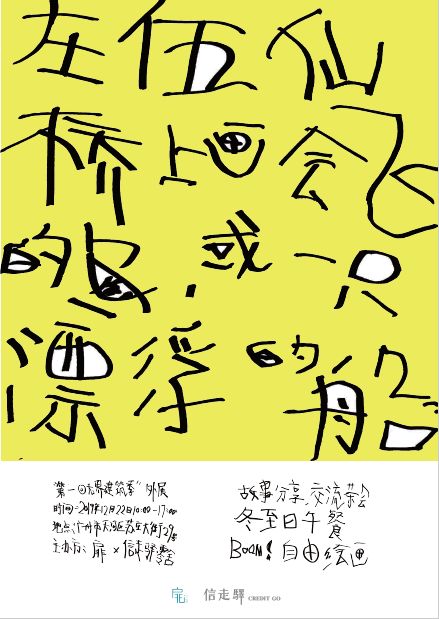 在伍仙
桥上画会飞
的 或一只
漂浮的船
"第一回无界建筑季"外展
时间：2017年12月22日10:00-17:00
地点：广州市天河区 大街29号
主办方：扉 × 信走驿
故事分享 交流茶会
冬至日午餐
BOOM！自由绘画
信走驛 CREDIT GO